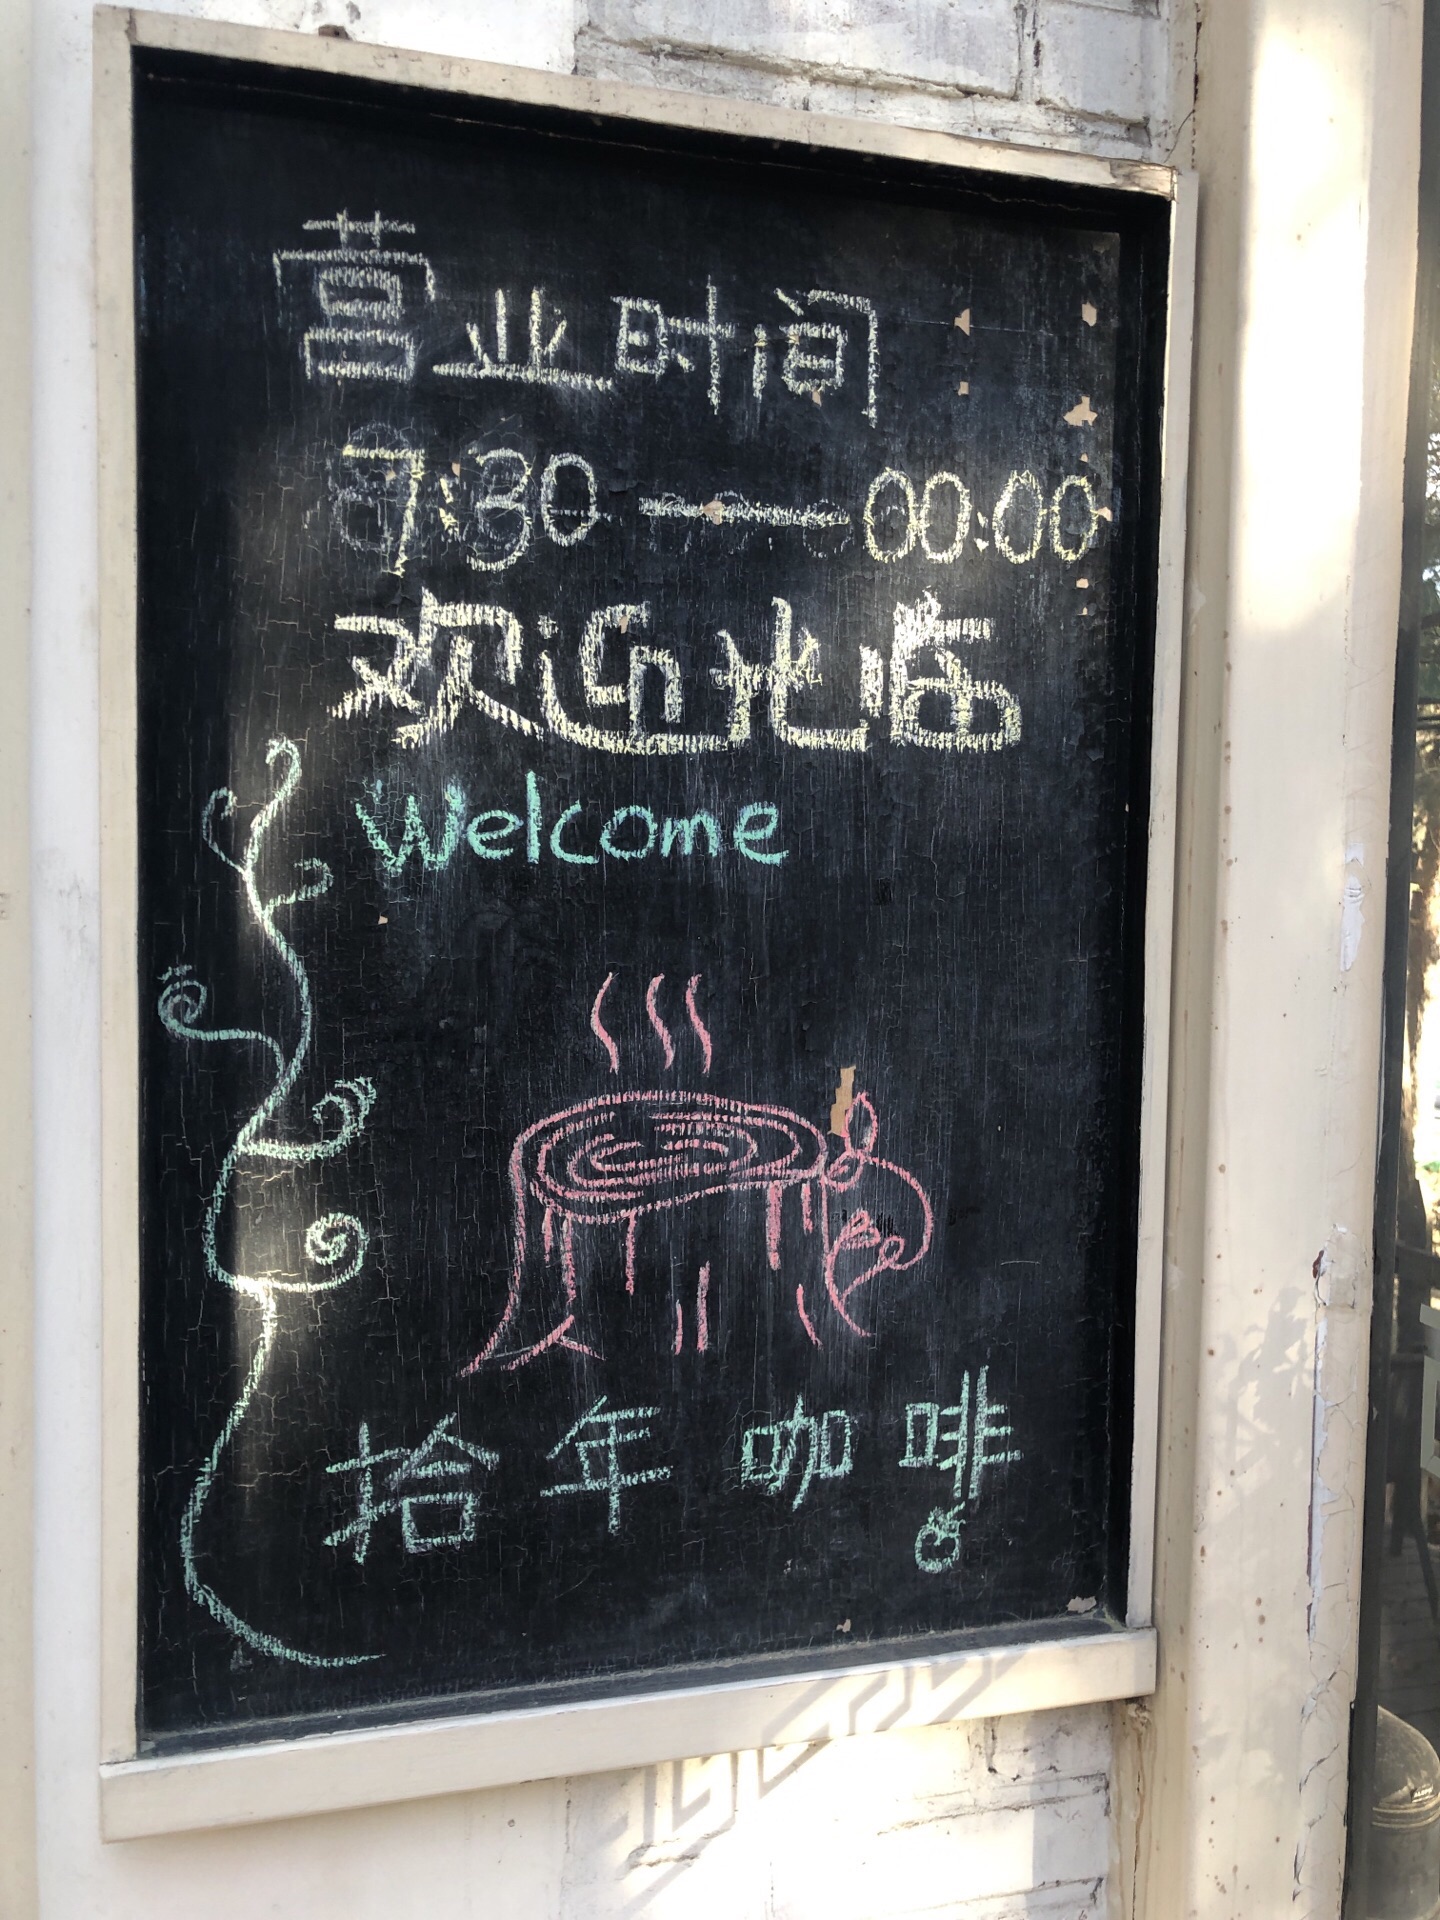 营业时间
7:30——00:00
欢迎光临
Welcome
拾年咖啡